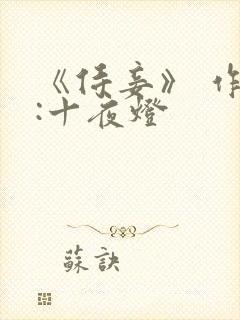 《侍妾》 作
:十夜燈
蘇訣